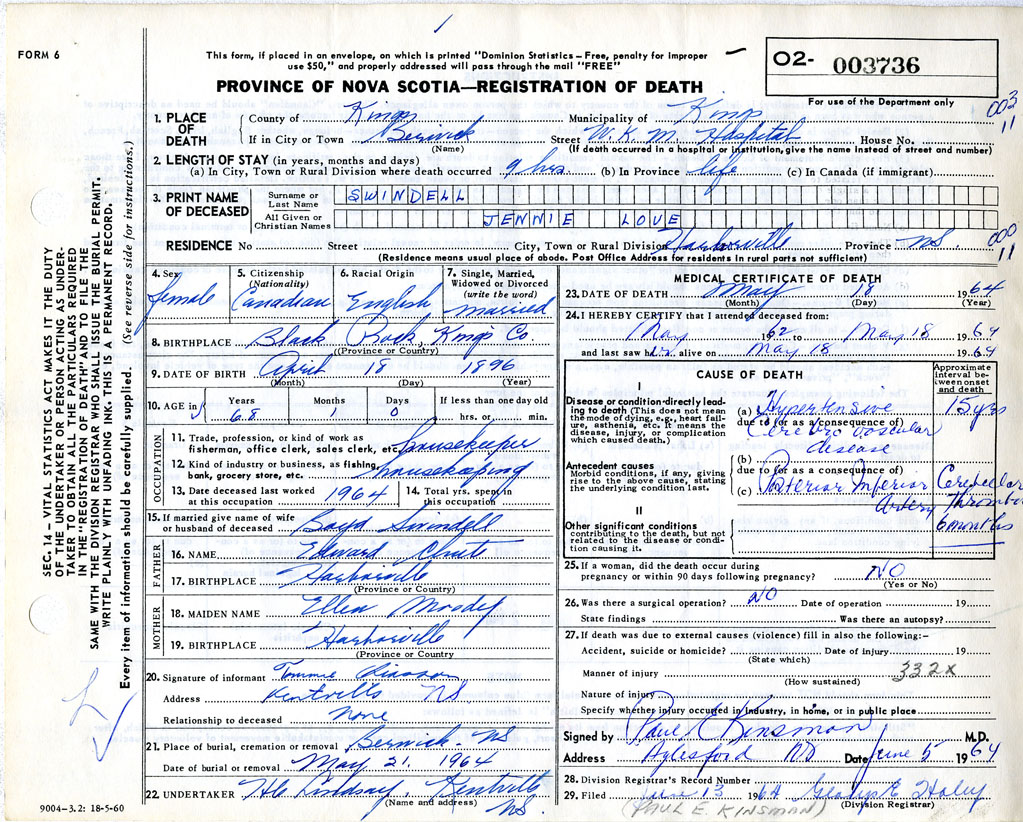 FORM 6
This form, if placed in an envelope, on which is printed "Dominion Statistics—Free, penalty for improper
use $50," and properly addressed will pass through the mail "FREE"
PROVINCE OF NOVA SCOTIA—REGISTRATION OF DEATH
O2- 003736
For use of the Department only
003
11
1. PLACE OF DEATH
County of Kings Municipality of Kings
If in City or Town Berwick Street W.K.M. Hospital House No.
(Name) (If death occurred in a hospital or institution, give the name instead of street and number)
2. LENGTH OF STAY (in years, months and days)
(a) In City, Town or Rural Division where death occurred 9 hrs. (b) In Province life (c) In Canada (if immigrant)
3. PRINT NAME OF DECEASED
Surname or Last Name SWINDELL
All Given or Christian Names JENNIE LOVE
RESIDENCE No. Street City, Town or Rural Division Harborville Province NS.
000
11
(Residence means usual place of abode. Post Office Address for residents in rural parts not sufficient)
4. Sex female
5. Citizenship (Nationality) Canadian
6. Racial Origin English
7. Single, Married, Widowed or Divorced (write the word) married
8. BIRTHPLACE Black Rock, Kings Co.
(Province or Country)
9. DATE OF BIRTH April 18 1896
(Month) (Day) (Year)
10. AGE in Years Months Days If less than one day old
68 1 0 hrs. or min.
OCCUPATION
11. Trade, profession, or kind of work as
fisherman, office clerk, sales clerk, etc. housekeeper
12. Kind of industry or business, as fishing,
bank, grocery store, etc. housekeeping
13. Date deceased last worked at this occupation 1964
14. Total yrs. spent in this occupation
15. If married give name of wife
or husband of deceased Boyd Swindell
FATHER
16. NAME Edward Chute
17. BIRTHPLACE Harborville
(Province or Country)
MOTHER
18. MAIDEN NAME Ellen
19. BIRTHPLACE Harborville
(Province or Country
20. Signature of informant Tommie
Address Kentville NS
Relationship to deceased None
21. Place of burial, cremation or removal Berwick - NS
Date of burial or removal May 21, 1964
22. UNDERTAKER Lindsay, Kentville NS
(Name and address)
MEDICAL CERTIFICATE OF DEATH
23. DATE OF DEATH May 18 1964
(Month) (Day) (Year)
24. I HEREBY CERTIFY that I attended deceased from:
May 1962 to May 18 1964
and last saw her alive on May 18 1964
CAUSE OF DEATH
Approximate interval between onset and death
I
Disease or condition directly leading to death (This does not mean the mode of dying, e.g., heart failure, asthenia, etc. It means the disease, injury, or complication which caused death.)
(a) Hypertensive 15 yrs
due to (or as a consequence of)
Cerebro vascular disease
Antecedent causes
Morbid conditions, if any, giving rise to the above cause, stating the underlying condition last.
(b)
due to (or as a consequence of)
(c) Posterior Inferior Cerebellar
Artery Thrombo
6 months
II
Other significant conditions
contributing to the death, but not related to the disease or condition causing it.
25. If a woman, did the death occur during
pregnancy or within 90 days following pregnancy? NO
(Yes or No)
26. Was there a surgical operation? NO Date of operation 19
State findings Was there an autopsy?
27. If death was due to external causes (violence) fill in also the following:—
Accident, suicide or homicide? Date of injury 19
(State which)
Manner of injury 332X
(How sustained)
Nature of injury
Specify whether injury occurred in industry, in home, or in public place
Signed by Paul E Kinsman M.D.
Address Aylesford NS Date June 5 1964
28. Division Registrar's Record Number
29. Filed June 13 1964 Gladys E
(Division Registrar)
(PAUL E. KINSMAN)
9004-3.2: 18-5-60
SEC. 14—VITAL STATISTICS ACT MAKES IT THE DUTY
OF THE UNDERTAKER OR PERSON ACTING AS UNDER-
TAKER TO OBTAIN ALL THE PARTICULARS REQUIRED
IN THE "REGISTRATION OF DEATH" AND TO FILE THE
SAME WITH THE DIVISION REGISTRAR WHO SHALL ISSUE THE BURIAL PERMIT.
WRITE PLAINLY WITH UNFADING INK. THIS IS A PERMANENT RECORD.
Every item of information should be carefully supplied. (See reverse side for instructions.)